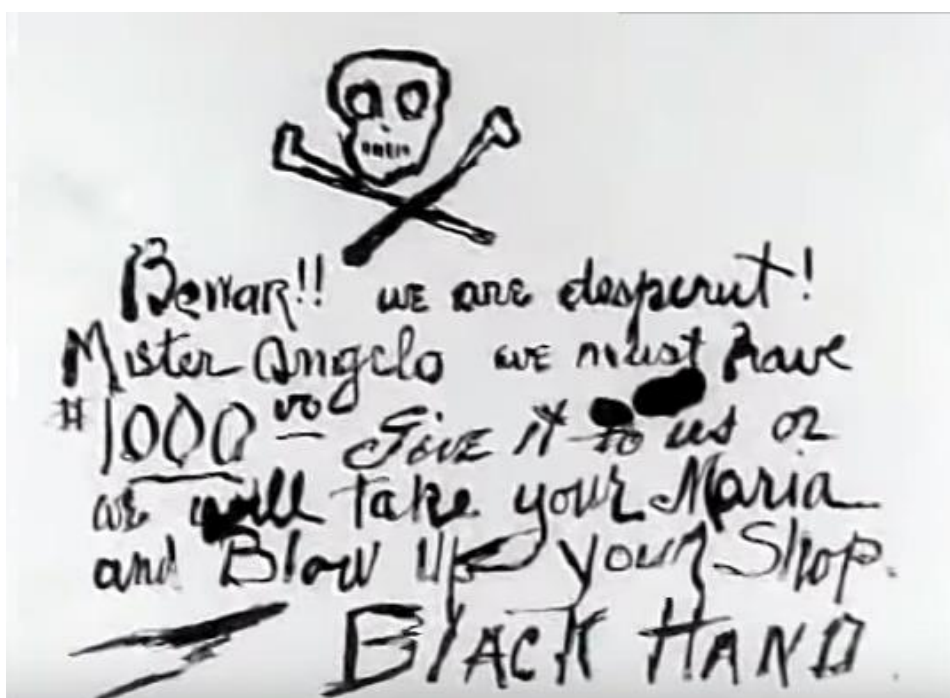 Bewar!! we are desperut!
Mister Angelo we must have
$1000 00 Give it to us or
we will take your Maria
and Blow Up your Shop.
BlACK HAND